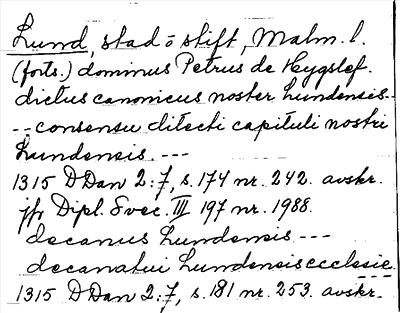 Lund, stad o stift, Malm. l.
(forts.) dominus Petrus de Heygslef.
dictus canonicus noster lundensis --
-- consensu dilecti capituli nostri
lundensis. ---
1315 DDan 2:7, s. 174 nr. 242. avskr.
jfr Dipl. Svec. III 197 nr. 1988.
decanus lundensis. ---
decanatui lundensis ecclesie.
1315 DDan 2:7, s. 181 nr. 253. avskr.